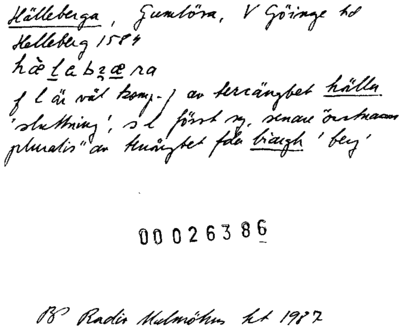 Hälleberga, Gumlösa, V Göinge hd
Helleberg 1584
hæ̀labzæra
f l är väl komp. av terrängbet hälla
'sluttning', s l först sg, senare "ortnamns
pluralis" av terrängbet fda biargh 'berg'
00026386
BP Radio Malmöhus ht 1987